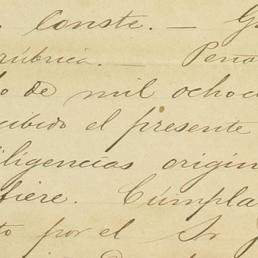 Conste. — G
rúbrica. — Peño
o de mil ochoc
cibido el presente
iligencias origin
fiere. Cúmpla
to por el Sr J